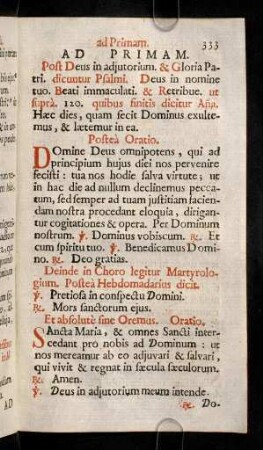 ad Primam. 333
AD PRIMAM.
Post Deus in adjutorium. & Gloria Pa-
tri. dicuntur Psalmi. Deus in nomine
tuo. Beati immaculati. & Retribue. ut
suprà. 120. quibus finitis dicitur Aña.
Hæc dies, quam fecit Dominus exulte-
mus, & lætemur in ea.
Posteà Oratio.
Domine Deus omnipotens, qui ad
principium hujus diei nos pervenire
fecisti: tua nos hodie salva virtute; ut
in hac die ad nullum declinemus pecca-
tum, sed semper ad tuam justitiam facien-
dam nostra procedant eloquia, dirigan-
tur cogitationes & opera. Per Dominum
nostrum. ℣. Dominus vobiscum. ℟. Et
cum spiritu tuo. ℣. Benedicamus Domi-
no. ℟. Deo gratias.
Deinde in Choro legitur Martyrolo-
gium. Posteà Hebdomadarius dicit.
℣. Pretiosa in conspectu Domini.
℟. Mors sanctorum ejus.
Et absolutè sine Oremus. Oratio.
Sancta Maria, & omnes Sancti inter-
cedant pro nobis ad Dominum: ut
nos mereamur ab eo adjuvari & salvari,
qui vivit & regnat in sæcula sæculorum.
℟. Amen.
℣. Deus in adjutorium meum intende.
℟. Do-
AD